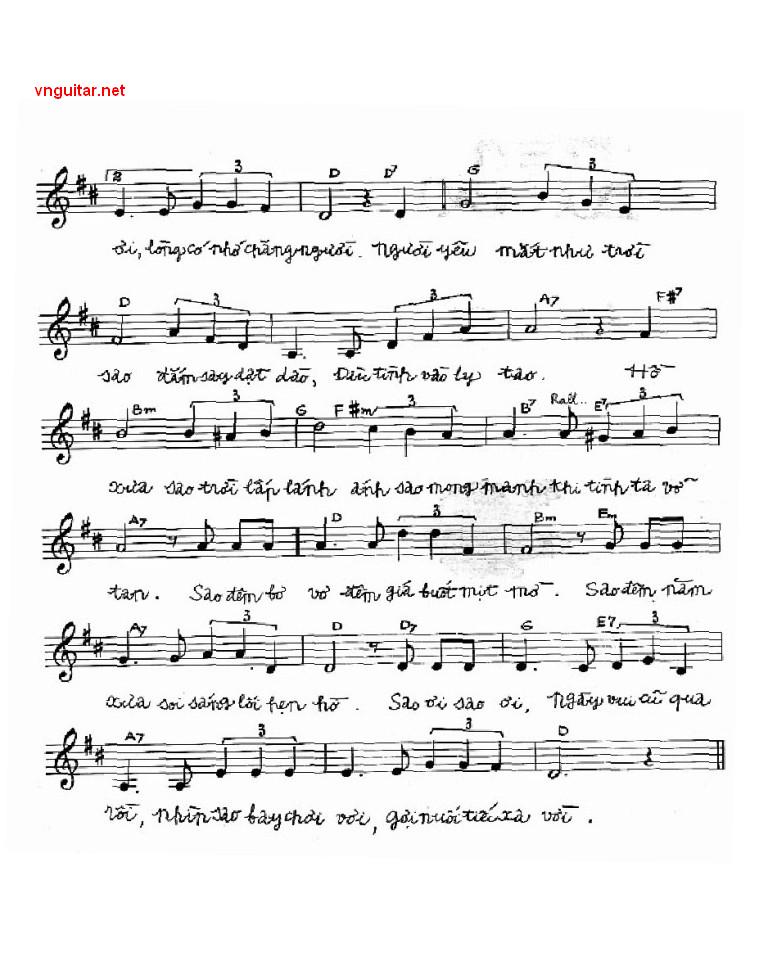 vnguitar.net
2 3 D D7 G 3
ơi, lòng có nhớ chăng người. Người yêu mắt như trời
D 3 3 A7 F#7
sao đắm say dạt dào, Dìu tình vào ly tao. Hồ
Bm 3 G F#m 3 B7 Rall.. E7 3
xưa sao trời lấp lánh ánh sao mong manh khi tình ta vỡ
A7 D 3 Bm Em
tan. Sao đêm bơ vơ đêm giá buốt mịt mờ. Sao đêm năm
A7 3 D D7 G E7 3
xưa soi sáng lối hẹn hò. Sao ơi sao ơi, ngày vui cũ qua
A7 3 3 D
rồi, nhìn sao bay chơi vơi, gợi nuối tiếc xa vời.